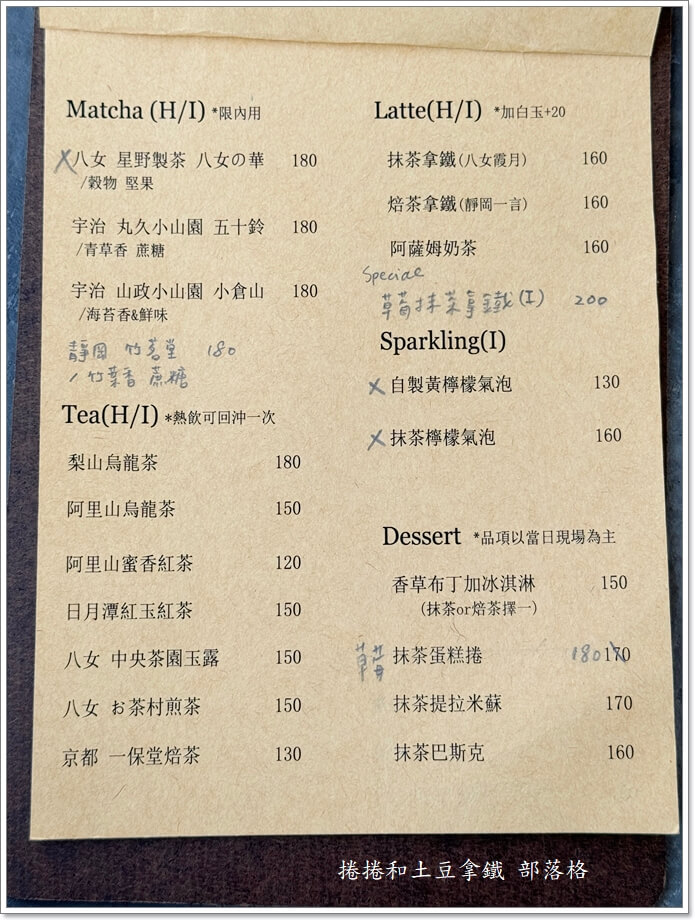 Matcha (H/I) *限內用
X八女 星野製茶 八女の華 180
/穀物 堅果
宇治 丸久小山園 五十鈴 180
/青草香 蔗糖
宇治 山政小山園 小倉山 180
/海苔香&鮮味
靜岡 竹茗堂 180
/竹葉香 蔗糖
Tea(H/I) *熱飲可回沖一次
梨山烏龍茶 180
阿里山烏龍茶 150
阿里山蜜香紅茶 120
日月潭紅玉紅茶 150
八女 中央茶園玉露 150
八女 お茶村煎茶 150
京都 一保堂焙茶 130
Latte(H/I) *加白玉+20
抹茶拿鐵(八女霞月) 160
焙茶拿鐵(靜岡一言) 160
阿薩姆奶茶 160
Special
草莓抹茶拿鐵(I) 200
Sparkling(I)
X自製黃檸檬氣泡 130
X抹茶檸檬氣泡 160
Dessert *品項以當日現場為主
香草布丁加冰淇淋 150
(抹茶or焙茶擇一)
草莓 抹茶蛋糕捲 180 170
抹茶提拉米蘇 170
抹茶巴斯克 160
捲捲和土豆拿鐵 部落格